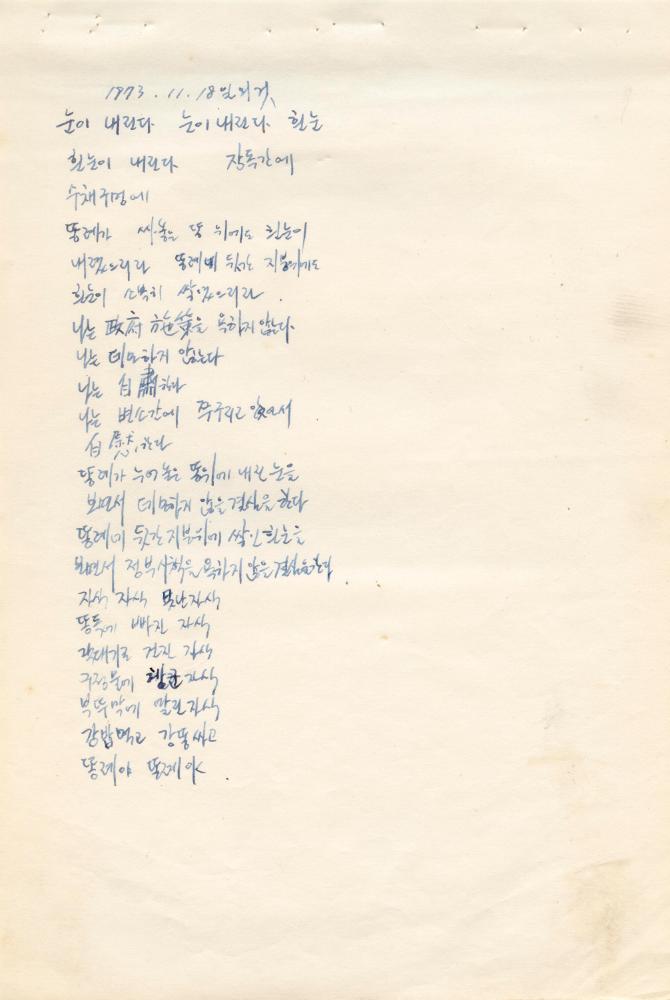 1973. 11. 18일의 것
눈이 내린다 눈이 내린다 흰눈
흰눈이 내린다 장독간에
수채구멍에
똥례가 싸놓은 똥 위에도 흰눈이
내렸으리라 똥례네 뒷간 지붕위에도
흰눈이 소복히 쌓였으리라.
나는 政府 施策을 욕하지 않는다.
나는 데모하지 않는다
나는 自肅한다
나는 변소간에 쭈구리고 앉으서
自慰한다
똥례가 누어놓은 똥위에 내린 눈을
보면서 데모하지 않을 결심을 한다
똥례네 뒷간 지붕위에 쌓인 흰눈을
보면서 정부시책을 욕하지 않을 결심을 한다
자식 자식 못난자식
똥독에 빠진 자식
작대기로 건진 자식
구정물에 헹군 자식
부뚜막에 말린 자식
강밥먹고 강똥싸고
똥례야 똥례야.